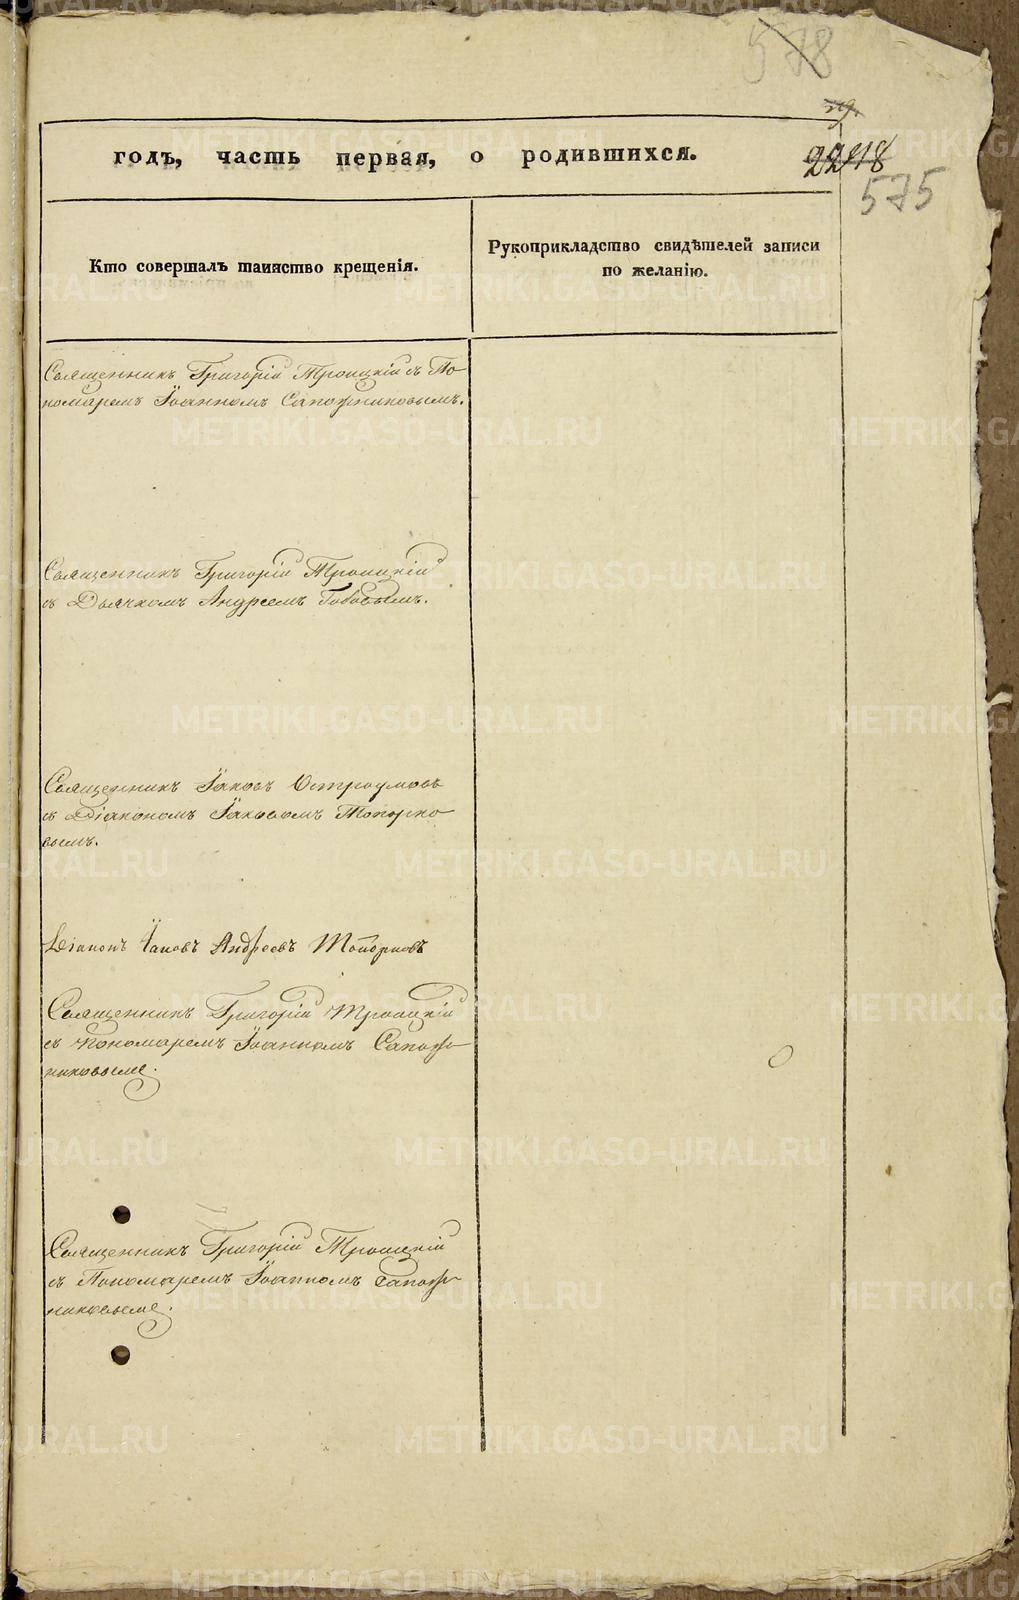 578
2218
575
годъ, часть первая, о родившихся.
Кто совершалъ таинство крещенія.
Рукоприкладство свидѣтелей записи
по желанію.
Священникъ Григорій Троицкій съ По-
номаремъ Іоанномъ Сапожниковымъ.
Священникъ Григорій Троицкій
съ Дьячкомъ Андреемъ
Священникъ Іаковъ Остроумовъ
съ Діакономъ Іаковомъ Топорко-
вымъ.
Діаконъ Іаковъ Андреевъ Топорковъ
Священникъ Григорій Троицкій
съ Пономаремъ Іоанномъ Сапож-
никовымъ.
Священникъ Григорій Троицкій
съ Пономаремъ Іоанномъ Сапож-
никовымъ.
METRIKI.GASO-URAL.RU